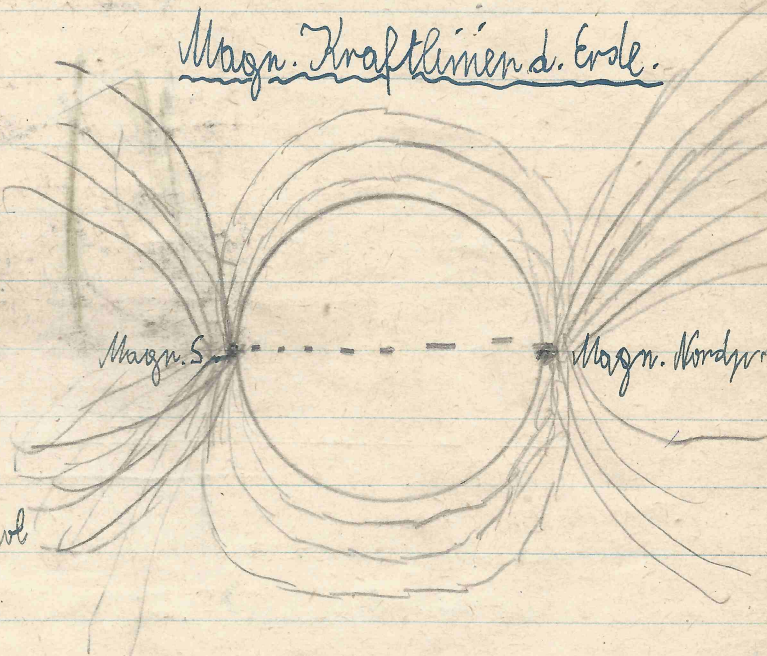 Magn. Kraftlinien d. Erde.
Magn. S.
Magn. Nordp.
ol